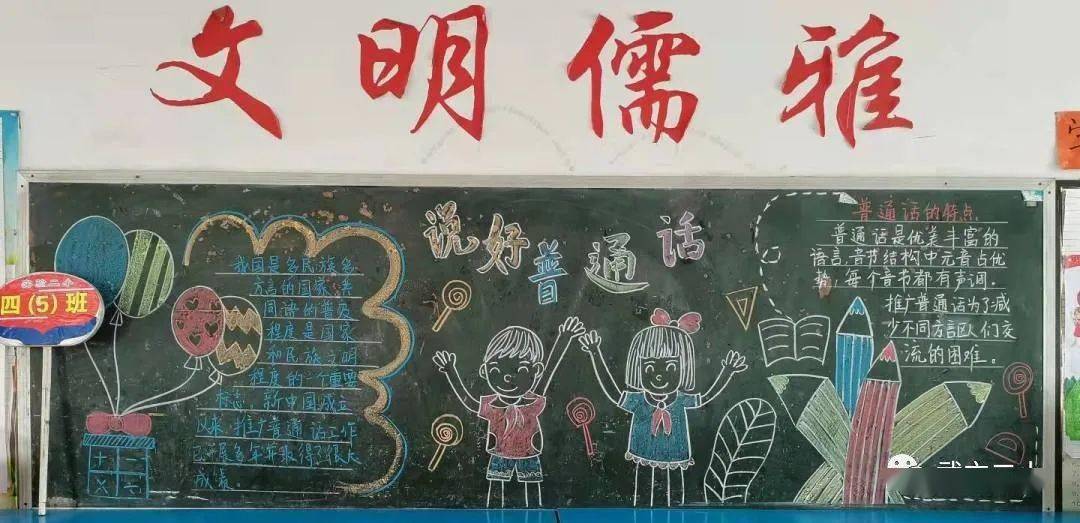 文明儒雅
说好普通话
实验二小
四(5)班
我国是多民族多
方言的国家,共
同语的普及
程度是国家
和民族文明
程度的一个重要
标志。新中国成立
以来,推广普通话工作
已开展多年并取得了很大
成就。
+ -
× ÷
普通话的特点
普通话是优美丰富的
语言,音节结构中元音占优
势,每个音节都有声调。
推广普通话为了减
少不同方言区人们交
流的困难。